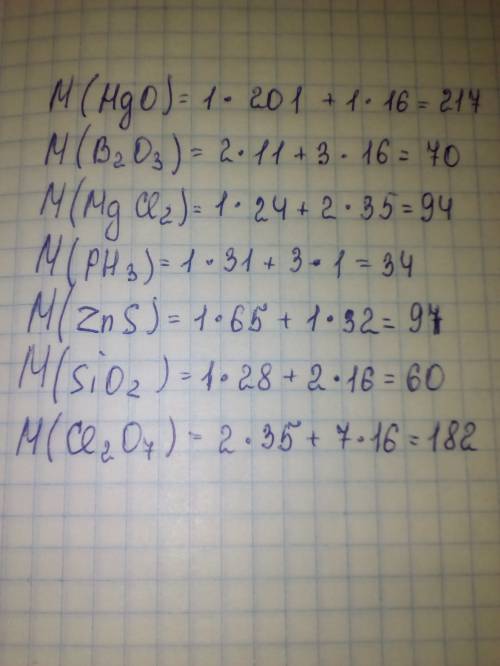 M(HgO) = 1 · 201 + 1 · 16 = 217
M(B₂O₃) = 2 · 11 + 3 · 16 = 70
M(MgCl₂) = 1 · 24 + 2 · 35 = 94
M(PH₃) = 1 · 31 + 3 · 1 = 34
M(ZnS) = 1 · 65 + 1 · 32 = 97
M(SiO₂) = 1 · 28 + 2 · 16 = 60
M(Cl₂O₇) = 2 · 35 + 7 · 16 = 182